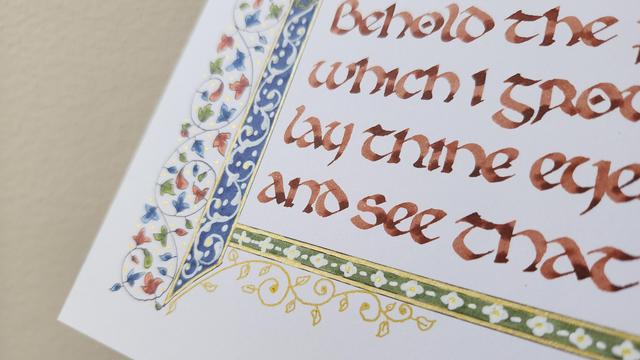 Behold the
which I
lay thine eye
and see that